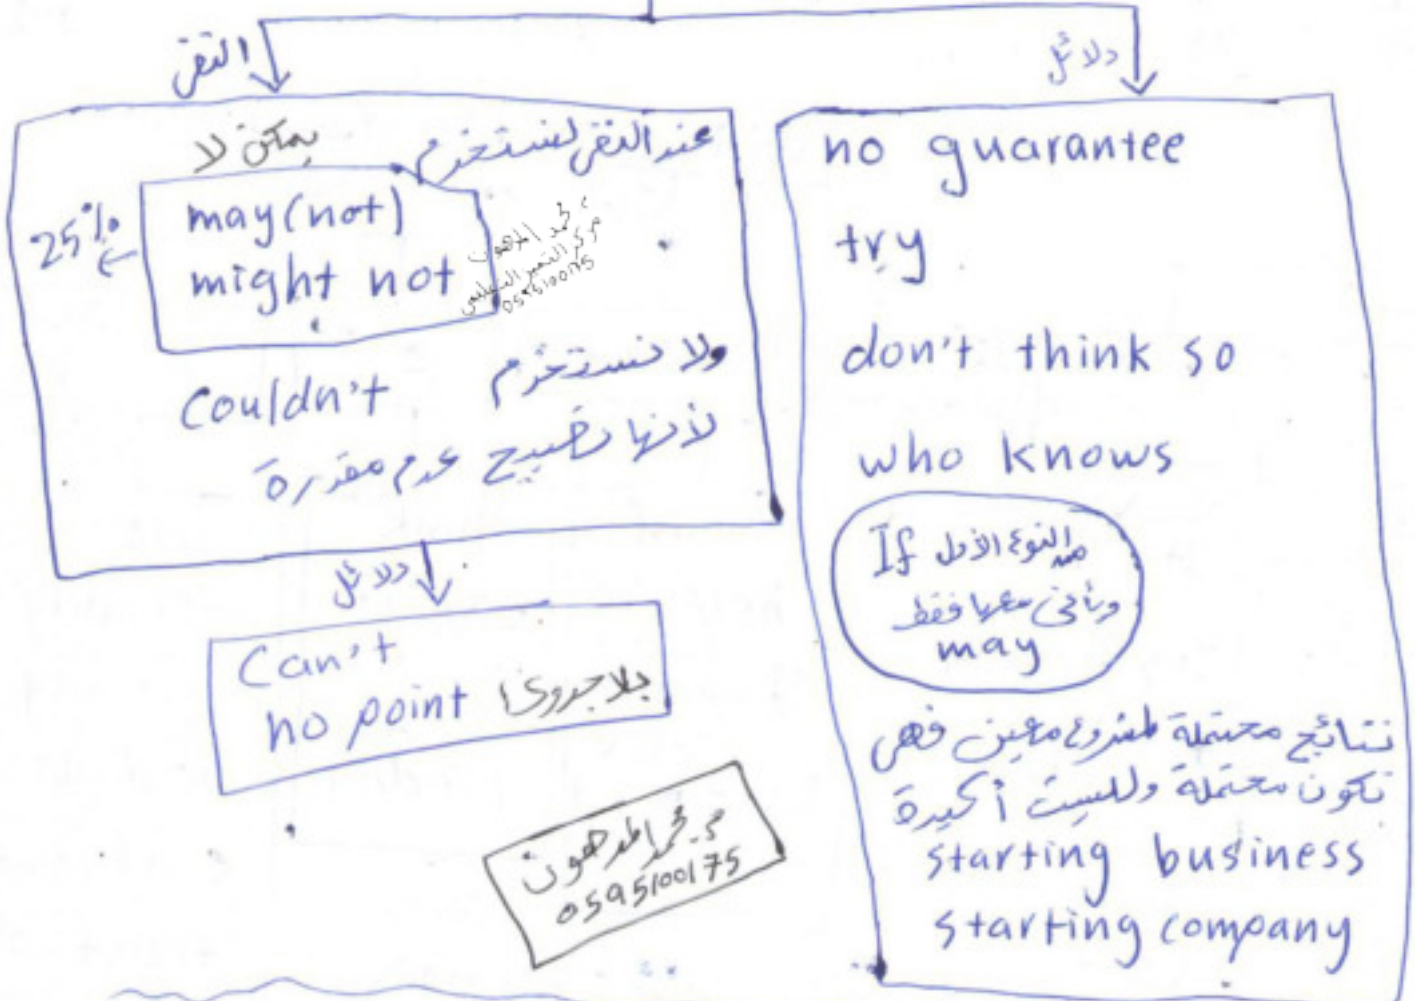 النفي
يمكن لا
عند النفي نستخدم
25%
may (not)
might not
محمد المدهون
مركز التميز التعليمي
0595100175
ولا نستخدم couldn't
لأنها تصبح عدم مقدرة
دلائل
can't
no point بلا جدوى
م. محمد المدهون
0595100175
دلائل
no guarantee
try
don't think so
who knows
If من النوع الأول
ويأتي معها فقط
may
نتائج محتملة لمشروع معين فهي
تكون محتملة وليست أكيدة
starting business
starting company